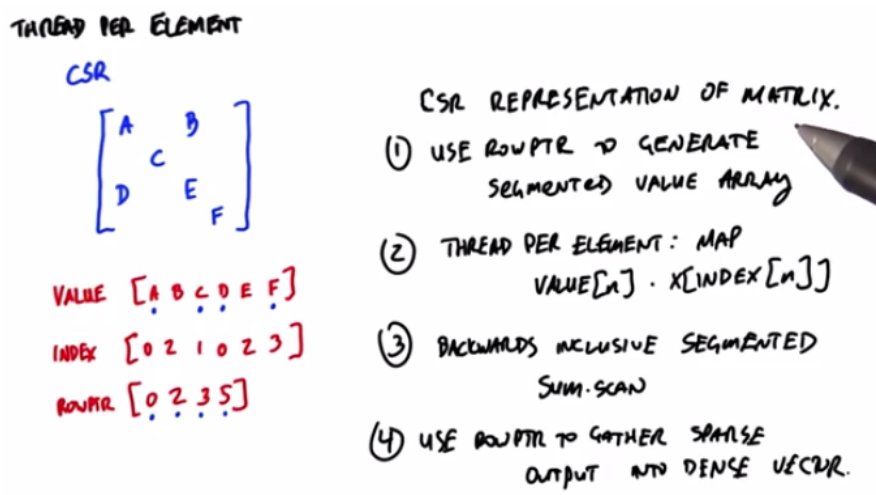 THREAD PER ELEMENT
CSR
A B
C
D E
F
VALUE [A B C D E F]
INDEX [0 2 1 0 2 3]
ROWPTR [0 2 3 5]
CSR REPRESENTATION OF MATRIX.
① USE ROWPTR TO GENERATE
SEGMENTED VALUE ARRAY
② THREAD PER ELEMENT: MAP
VALUE[n] · X[INDEX[n]]
③ BACKWARDS INCLUSIVE SEGMENTED
SUM-SCAN
④ USE ROWPTR TO GATHER SPARSE
OUTPUT INTO DENSE VECTOR.